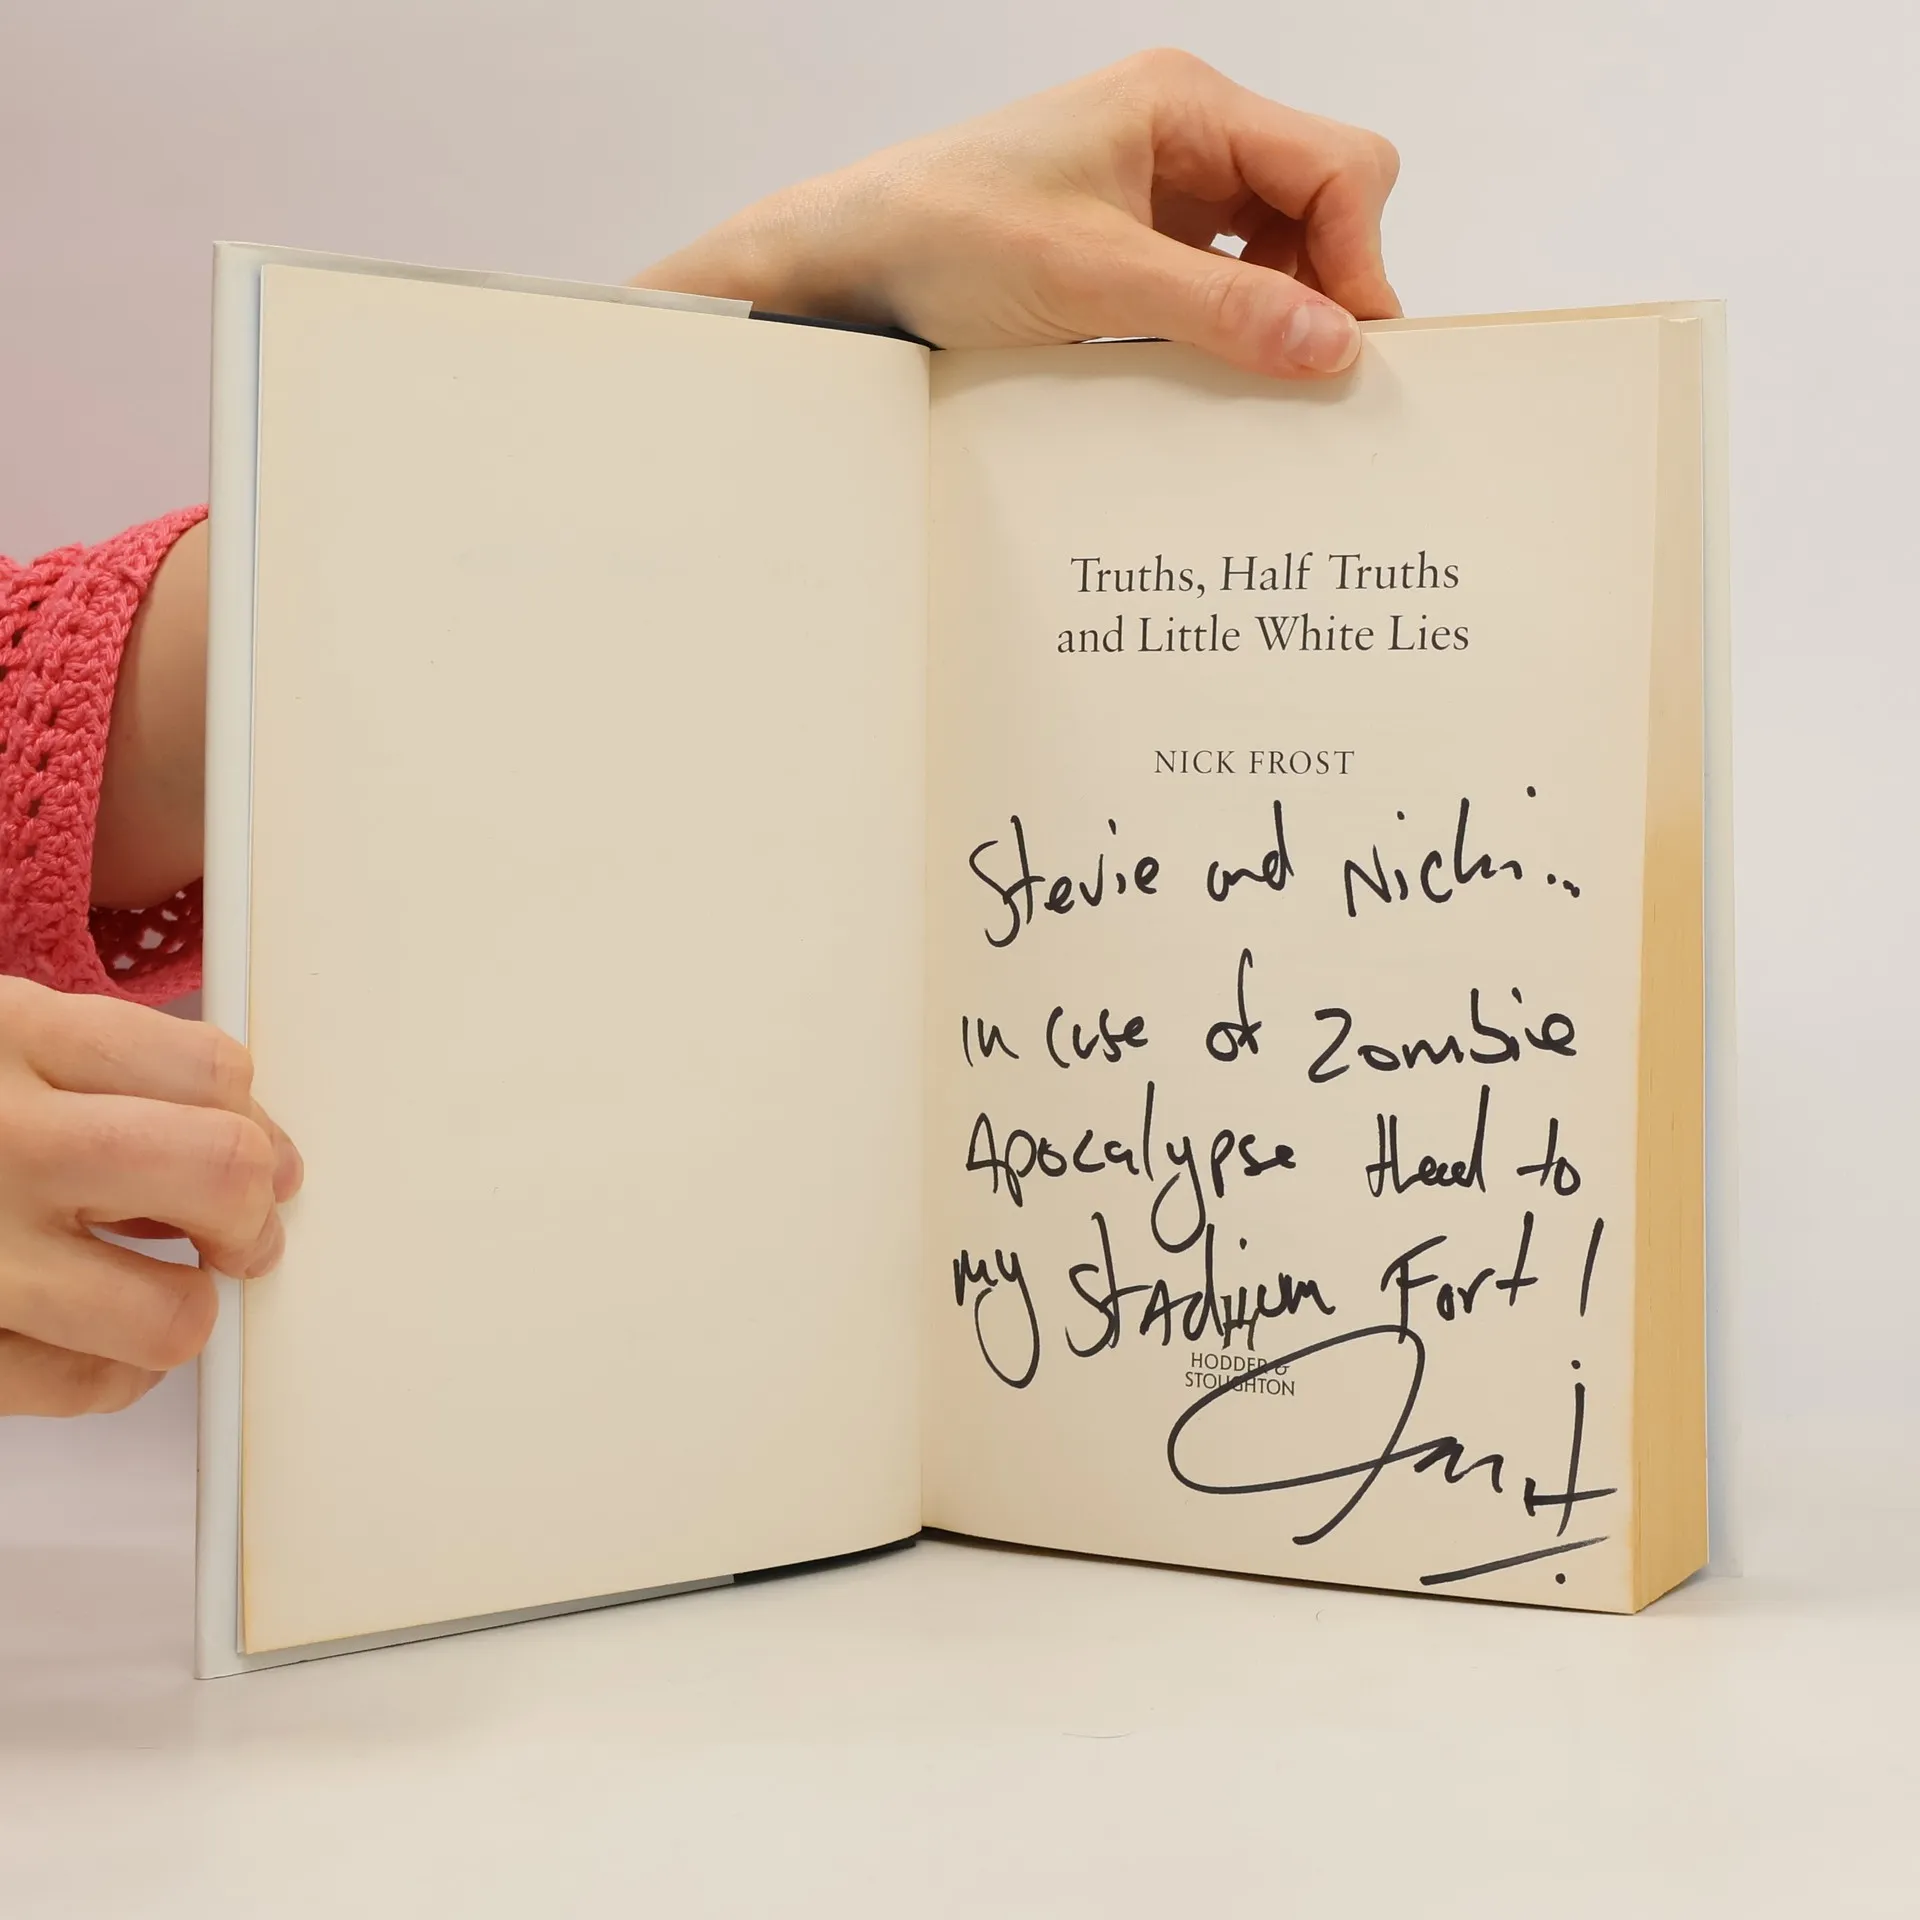 Truths, Half Truths
and Little White Lies
NICK FROST
Stevie and Nicki..
in case of Zombie
Apocalypse Head to
my Stadium Fort!
HODDER &
STOUGHTON